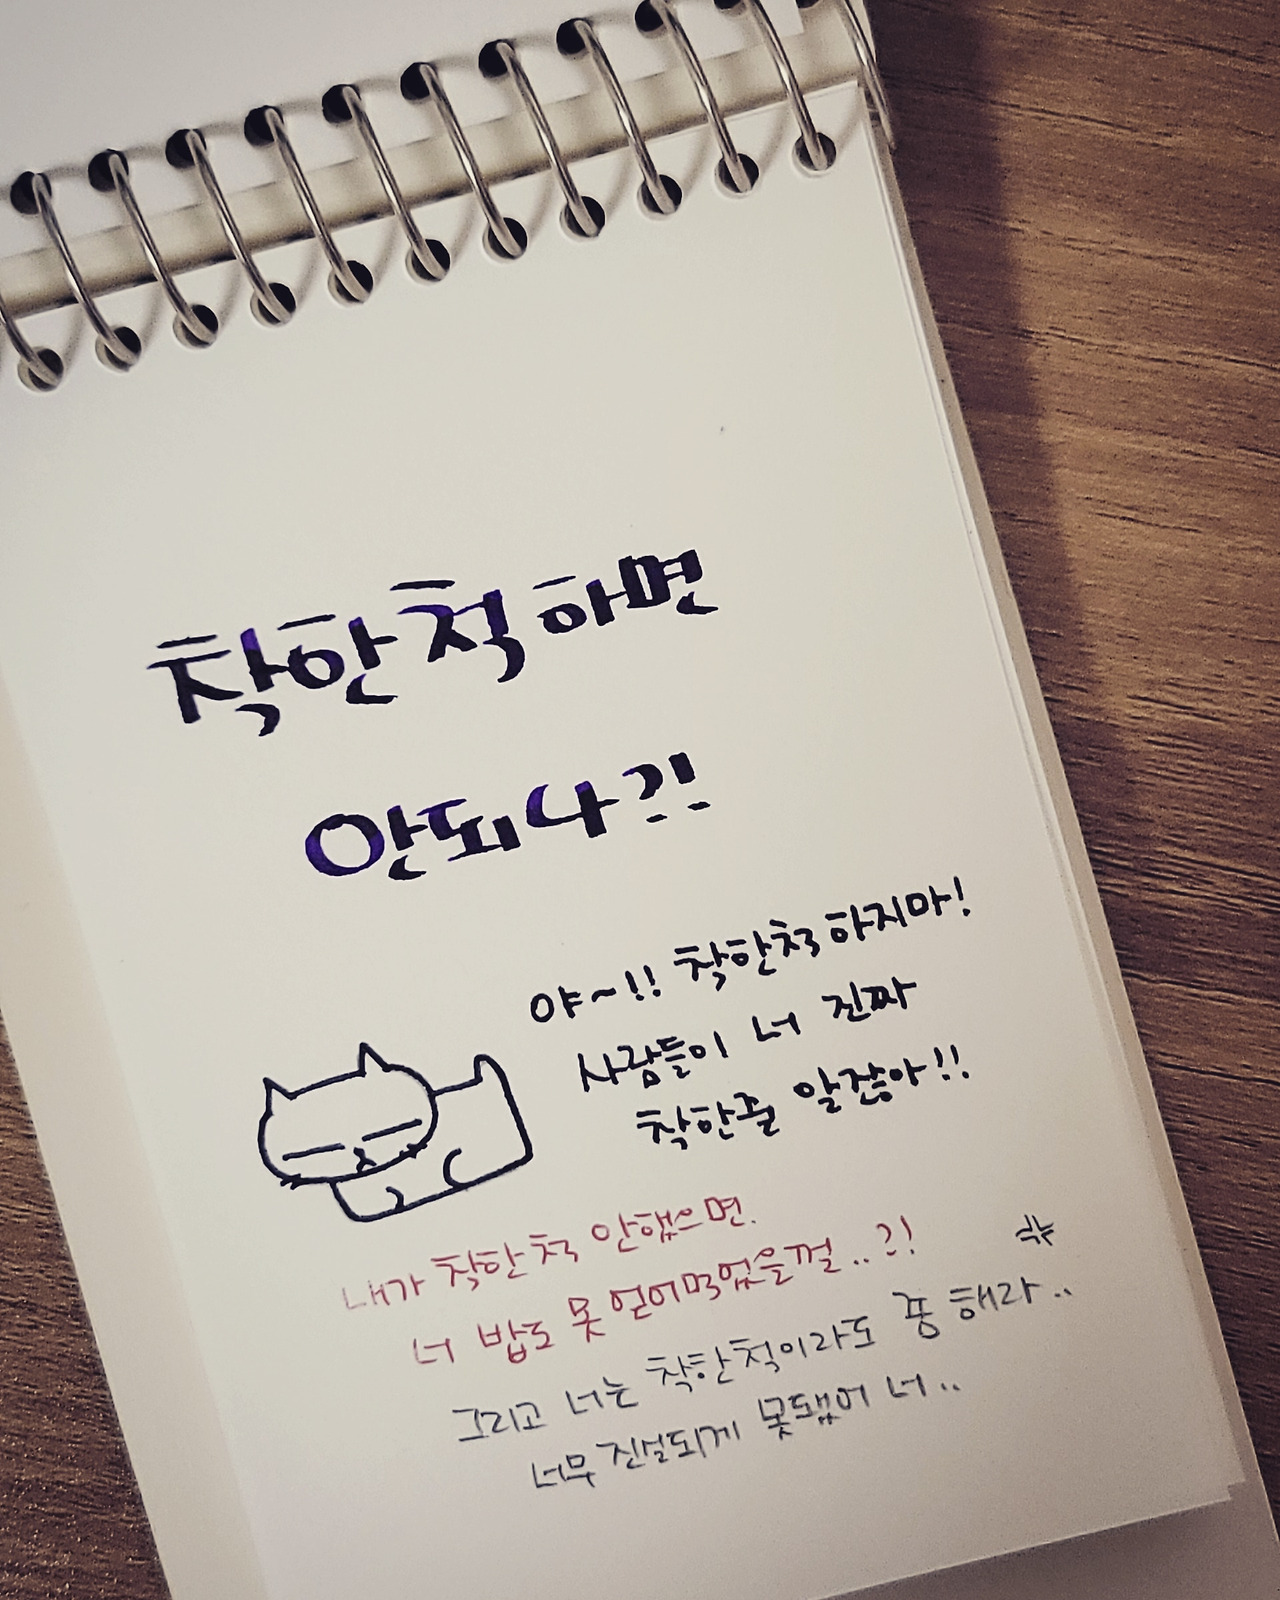 착한척 하면
안되나?!
야~!! 착한척 하지마!
사람들이 너 진짜
착한줄 알잖아!!
내가 착한척 안했으면.
너 밥도 못 얻어먹었을껄..?!
그리고 너는 착한척이라도 좀 해라..
너무 진실되게 못됐어 너..